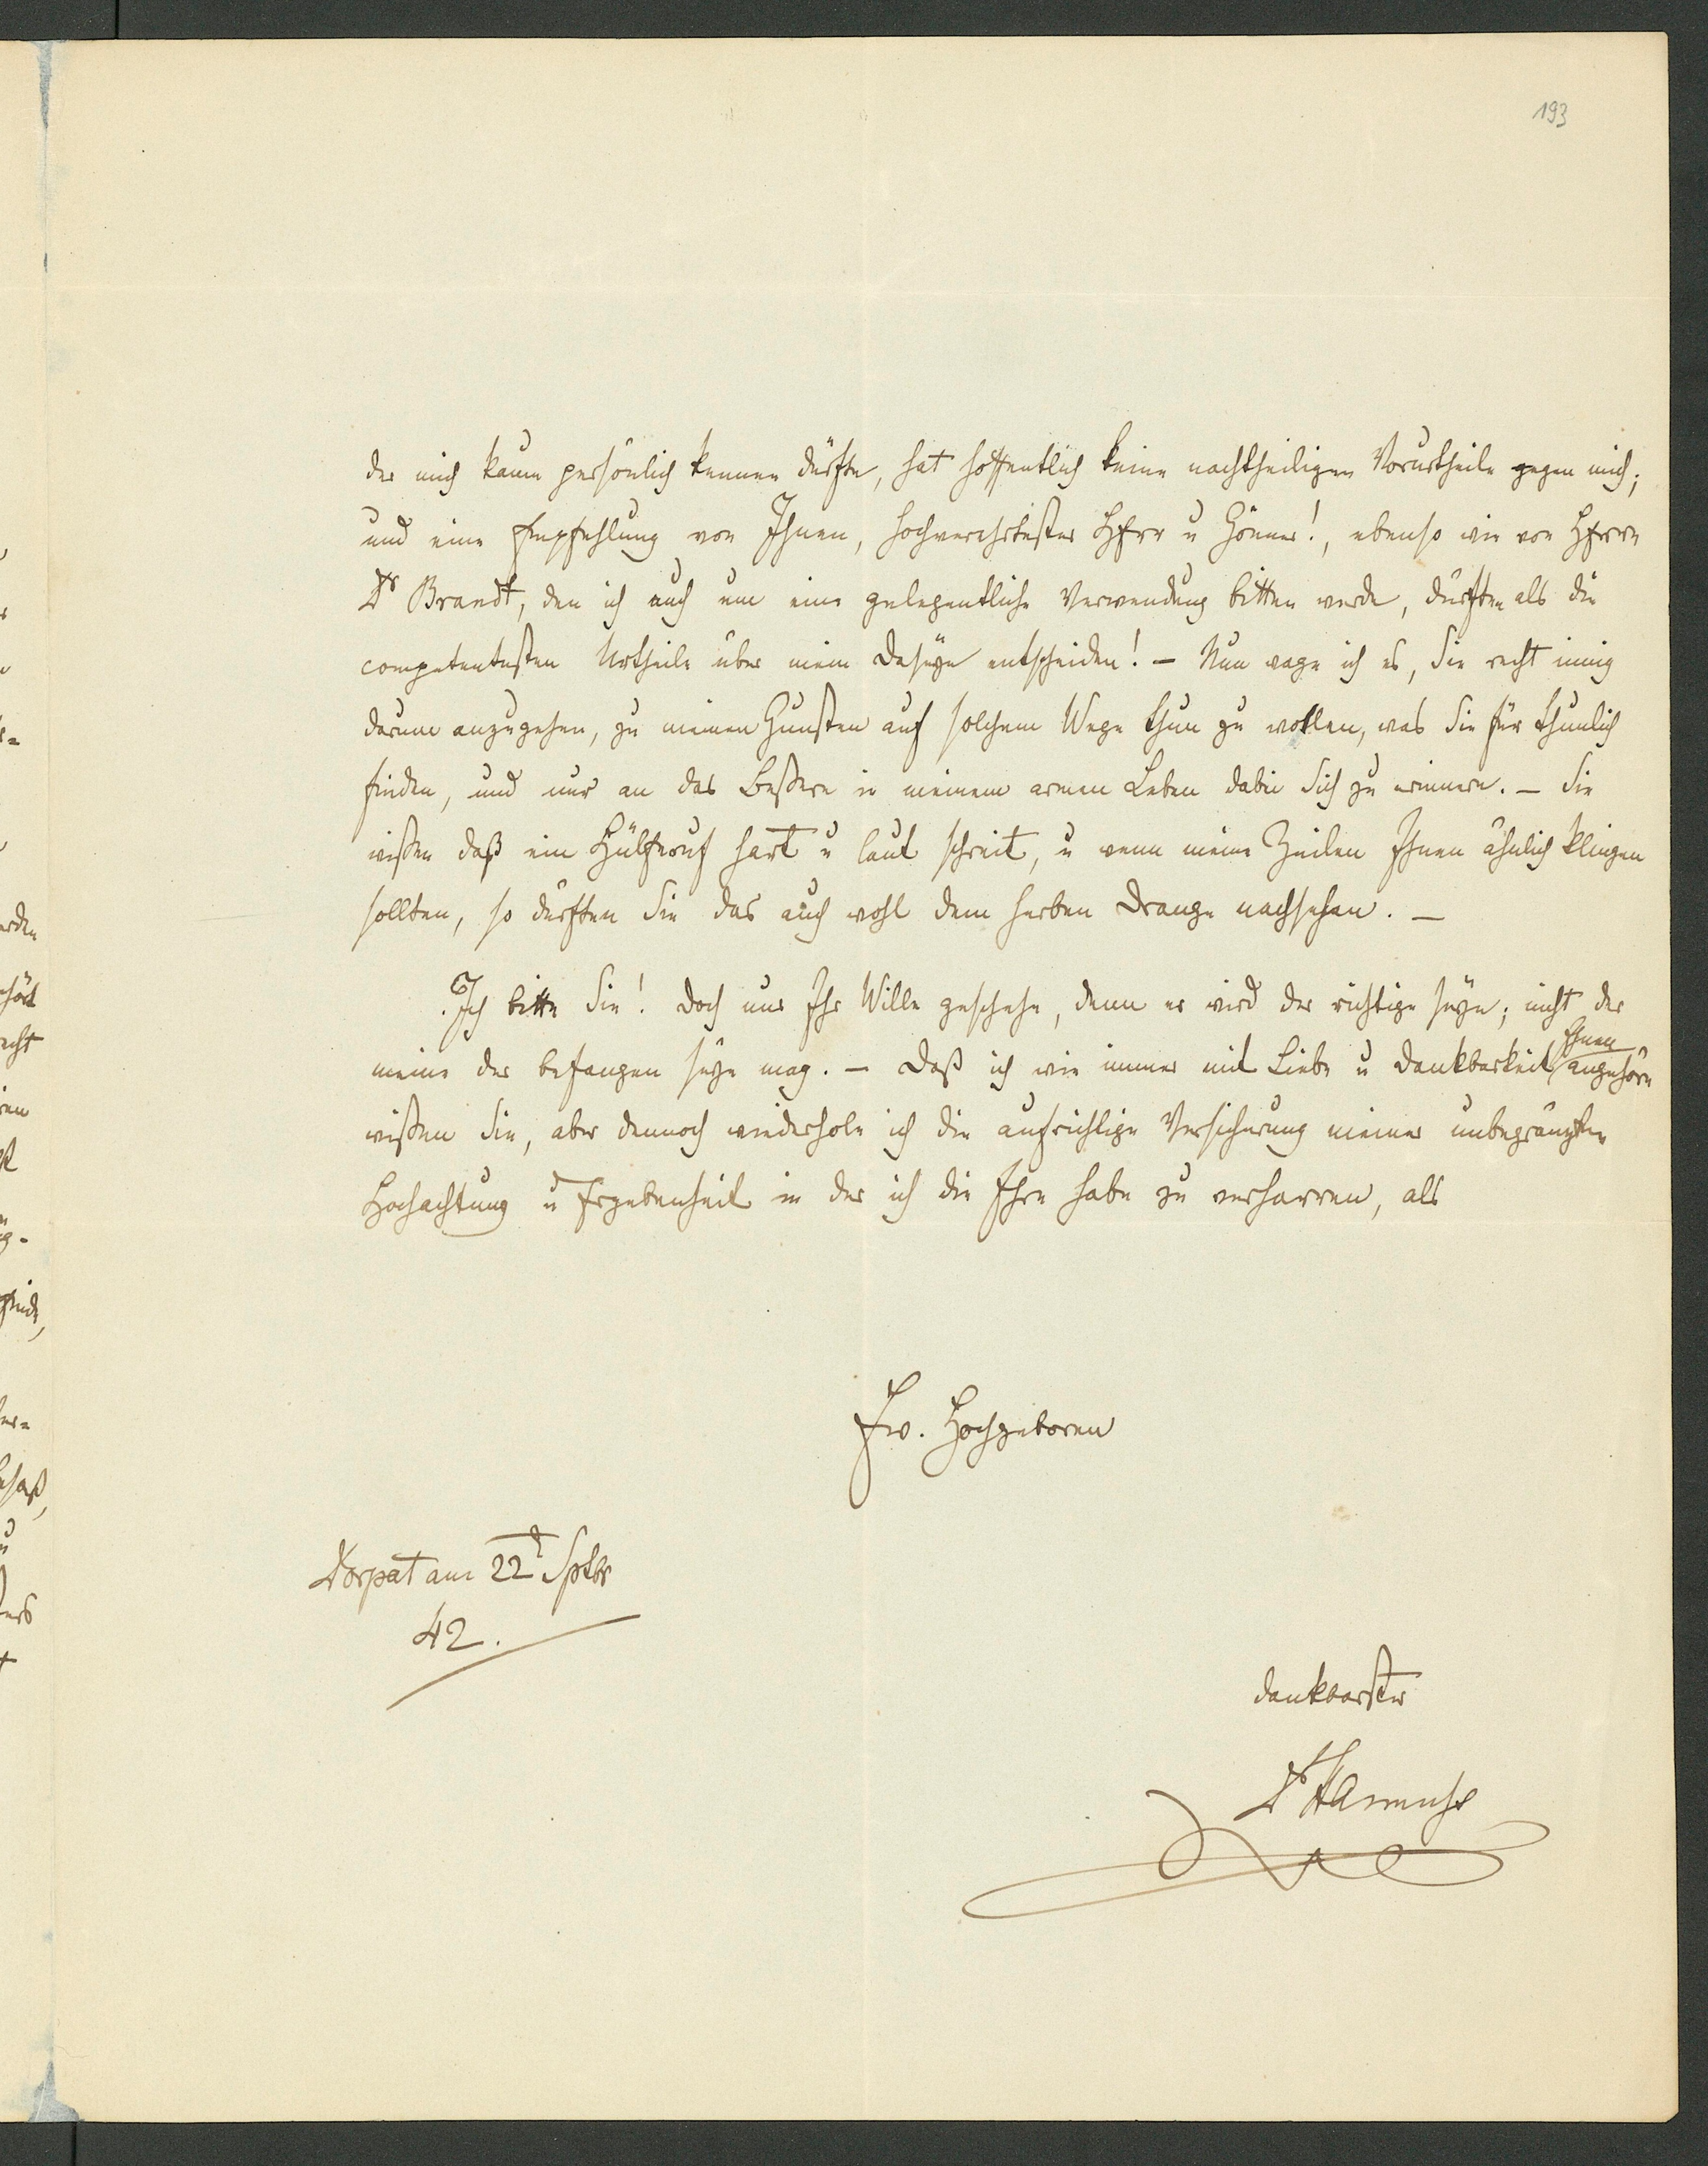 193
der mich kaum persönlich kennen dürfte, hat hoffentlich keine nachtheiligen Vorurtheile gegen mich;
und eine Empfehlung von Ihnen, hochverehrtester HErr u Gönner!, ebenso wie von HErrn
Dr Brandt, den ich auch um eine gelegentliche Verwendung bitten werde, dürften als die
competentesten Urtheile über mein Daseyn entscheiden! – Nun wage ich es, Sie recht innig
darum anzugehen, zu meinen Gunsten auf solchem Wege thun zu wollen, was Sie für thunlich
finden, und nur an das Bessere in meinem armen Leben dabei Sich zu erinnern. – Sie
wißen daß ein Hülferuf hart u laut schreit, u wenn meine Zeilen Ihnen ähnlich klingen
sollten, so dürften Sie das auch wohl dem herben Drange nachsehen. –
Ich bitte Sie! Doch nur Ihr Wille geschehe, denn er wird der richtige seyn; nicht der
meine der befangen seyn mag. – Daß ich wie immer mit Liebe u Dankbarkeit Ihnen angehöre
wißen Sie, aber dennoch wiederhole ich die aufrichtige Versicherung meiner unbegränzten
Hochachtung u Ergebenheit in der ich die Ehre habe zu verharren, als
Ew. Hochgeboren
Dorpat am 22t Sptbr
42.
dankbarster
Dr